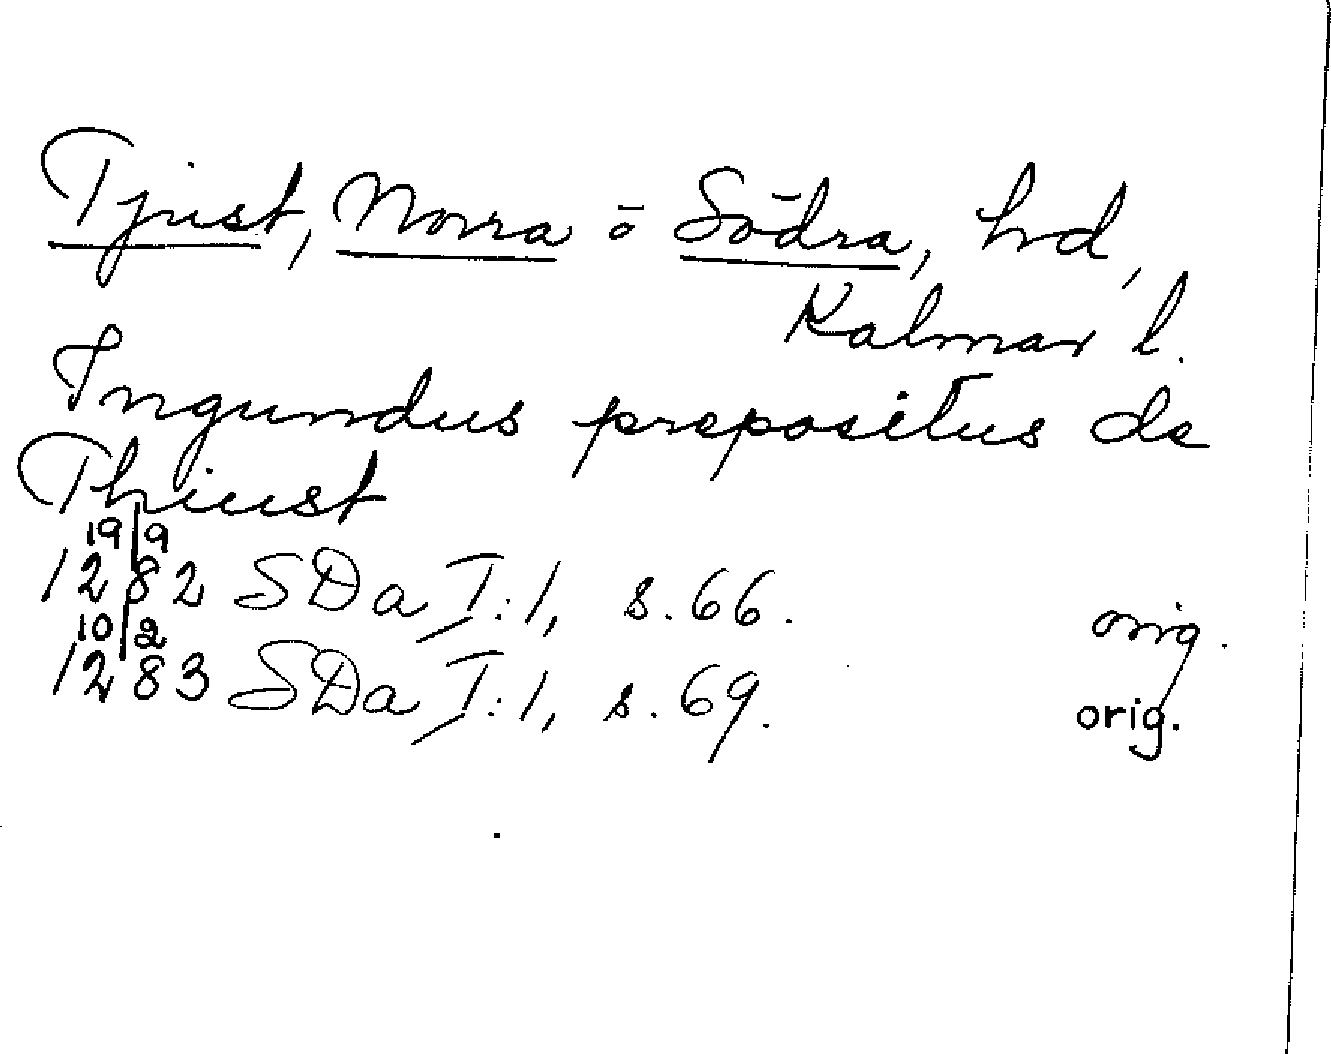 Tjust, Norra ō Södra, hd,
Kalmar l.
Ingundus prepositus de
Thiust
19/9
1282 SDa I:1, s. 66. orig.
10/2
1283 SDa I:1, s. 69. orig.